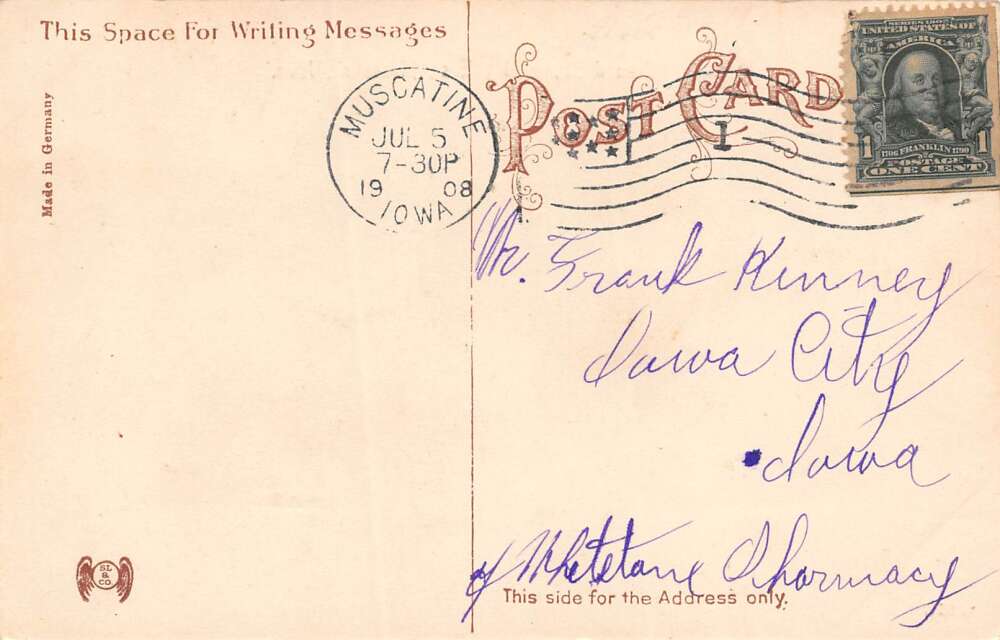 This Space For Writing Messages
Made in Germany
POST CARD
MUSCATINE
JUL 5
7-30P
19 08
IOWA
1
SERIES 1902
UNITED STATES OF
AMERICA
1706 FRANKLIN 1790
POSTAGE
1 ONE CENT 1
Mr. Frank Kinney
Iowa City
Iowa
Whetstone Pharmacy
SL
&
CO
This side for the Address only.